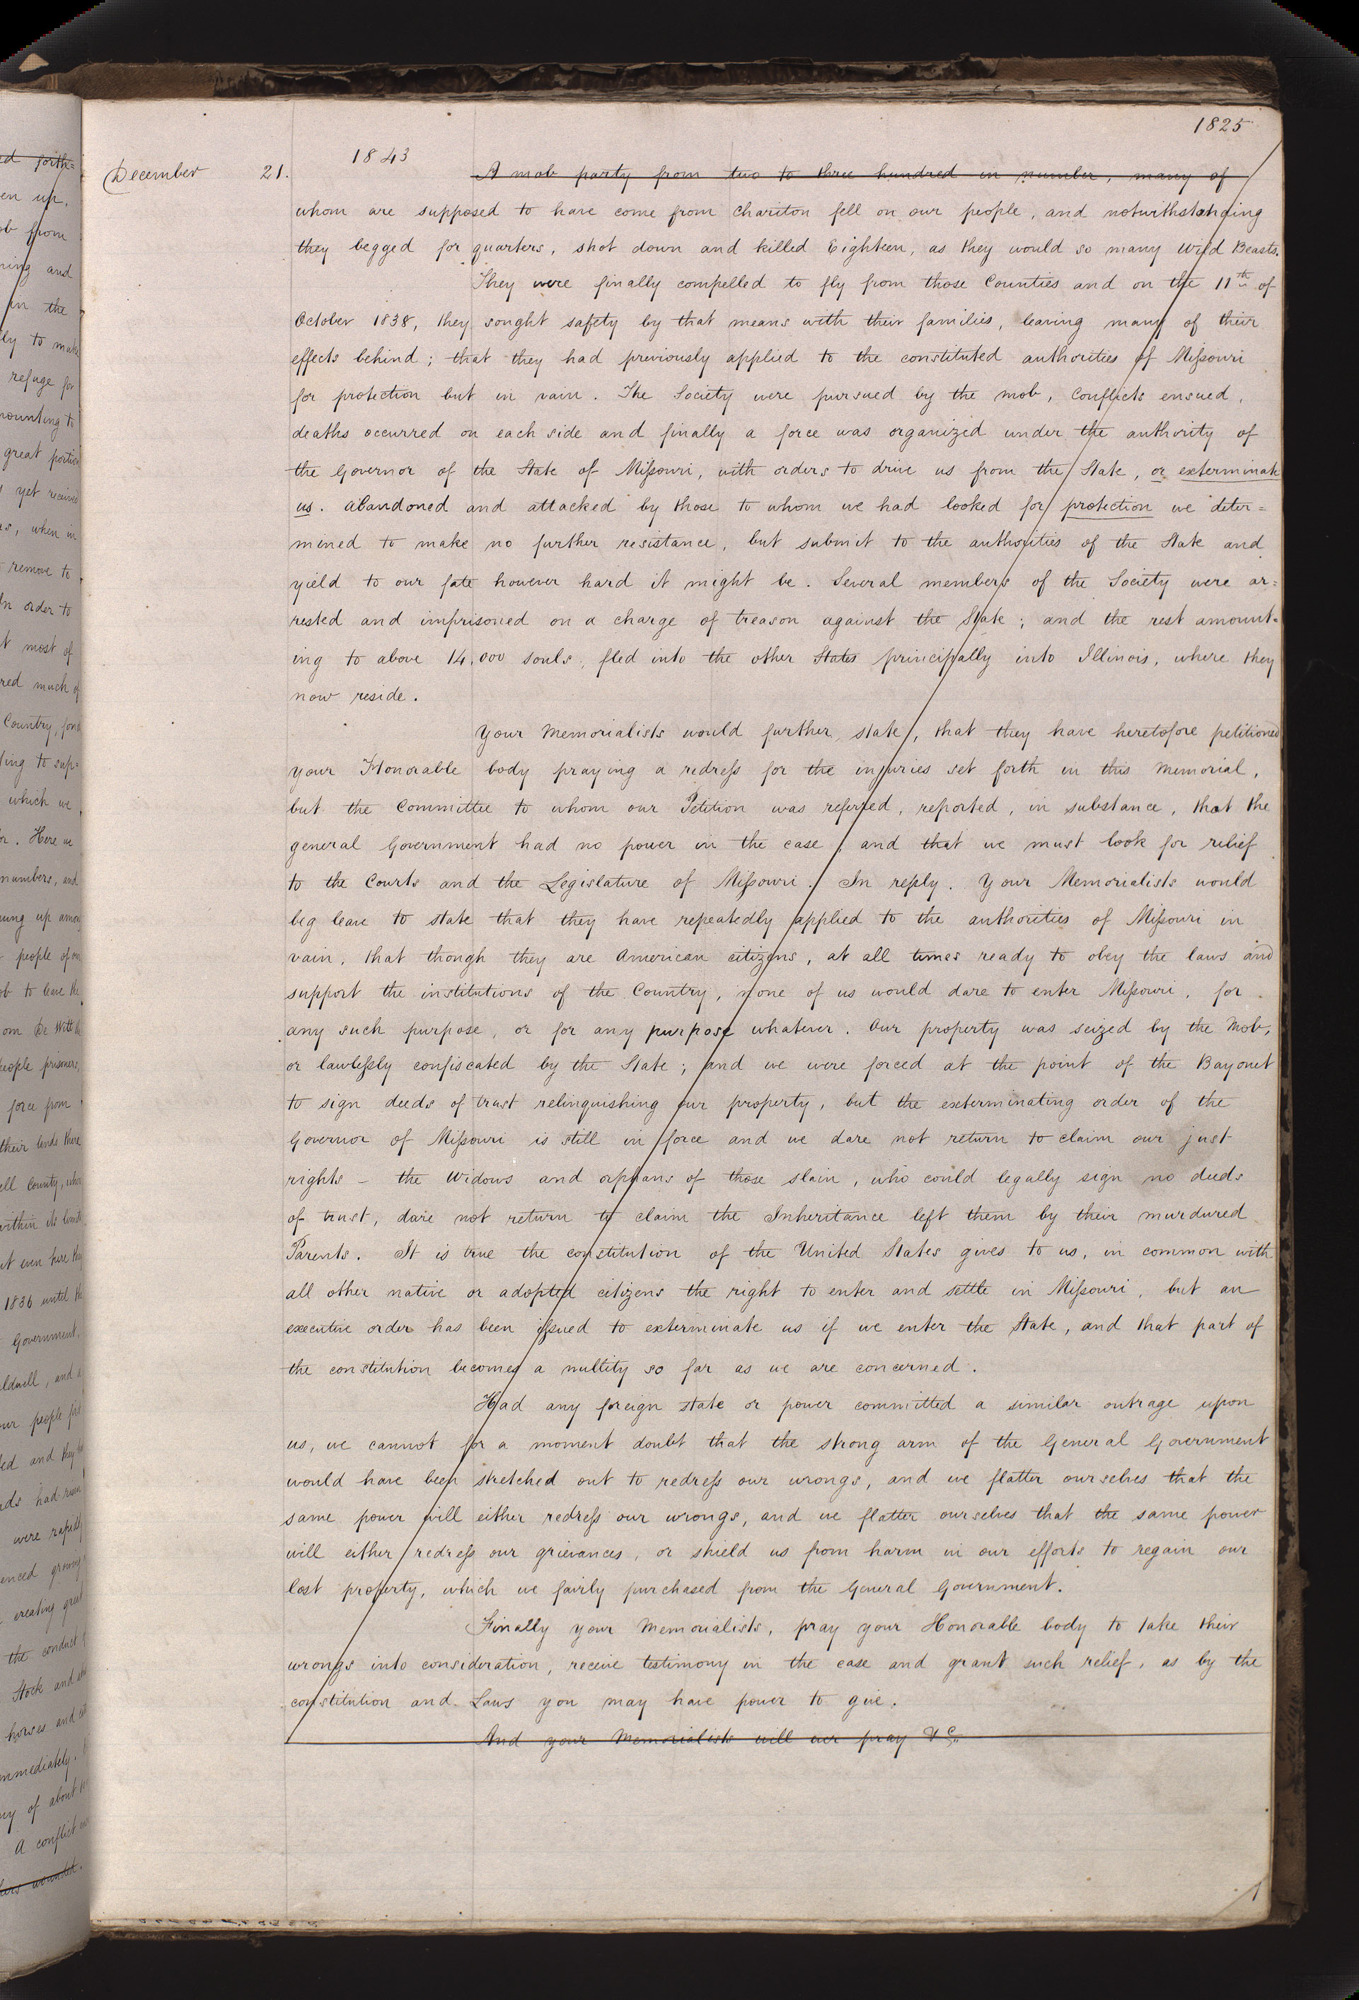 1825
1843
December 21. A mob party from two to three hundred in number, many of
whom are supposed to have come from Chariton fell on our people, and notwithstanding
they begged for quarters, shot down and killed Eighteen, as they would so many Wild Beasts.
They were finally compelled to fly from those Counties and on the 11th of
October 1838, they sought safety by that means with their families, leaving many of their
effects behind; that they had previously applied to the constituted authorities of Missouri
for protection but in vain. The Society were pursued by the mob, Conflicts ensued,
deaths occurred on each side and finally a force was organized under the authority of
the Governor of the State of Missouri, with orders to drive us from the State, or exterminate
us. Abandoned and attacked by those to whom we had looked for protection we deter=
mined to make no further resistance, but submit to the authorities of the State and
yield to our fate however hard it might be. Several members of the Society were ar=
rested and imprisoned on a charge of treason against the State; and the rest amount=
ing to above 14,000 souls, fled into the other States principally into Illinois, where they
now reside.
Your Memorialists would further, state, that they have heretofore petitioned
your Honorable body praying a redress for the injuries set forth in this Memorial,
but the Committee to whom our Petition was referred, reported, in substance, that the
general Government had no power in the case, and that we must look for relief
to the Courts and the Legislature of Missouri. In reply. Your Memorialists would
beg leave to state that they have repeatedly applied to the authorities of Missouri in
vain, that though they are American citizens, at all times ready to obey the laws and
support the institutions of the Country, none of us would dare to enter Missouri, for
any such purpose, or for any purpose whatever. Our property was seized by the Mob,
or lawlessly confiscated by the State; and we were forced at the point of the Bayonet
to sign deeds of trust relinquishing our property, but the exterminating order of the
Governor of Missouri is still in force and we dare not return to claim our just
rights – the Widows and orphans of those slain, who could legally sign no deeds
of trust, dare not return to claim the Inheritance left them by their murdured
Parents. It is true the constitution of the United States gives to us, in common with
all other native or adopted citizens the right to enter and settle in Missouri, but an
executive order has been issued to exterminate us if we enter the State, and that part of
the constitution becomes a nullity so far as we are concerned.
Had any foreign state or power committed a similar outrage upon
us, we cannot for a moment doubt that the strong arm of the General Government
would have been stretched out to redress our wrongs, and we flatter ourselves that the
same power will either redress our wrongs, and we flatter ourselves that the same power
will either redress our grievances, or shield us from harm in our efforts to regain our
lost property, which we fairly purchased from the General Government.
Finally your Memorialists, pray your Honorable body to take their
wrongs into consideration, receive testimony in the case and grant such relief, as by the
constitution and Laws you may have power to give.
And your Memorialists will ever pray &c.